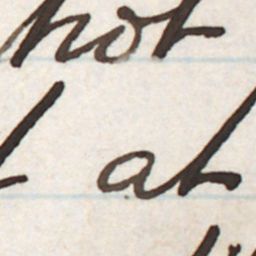 not
at